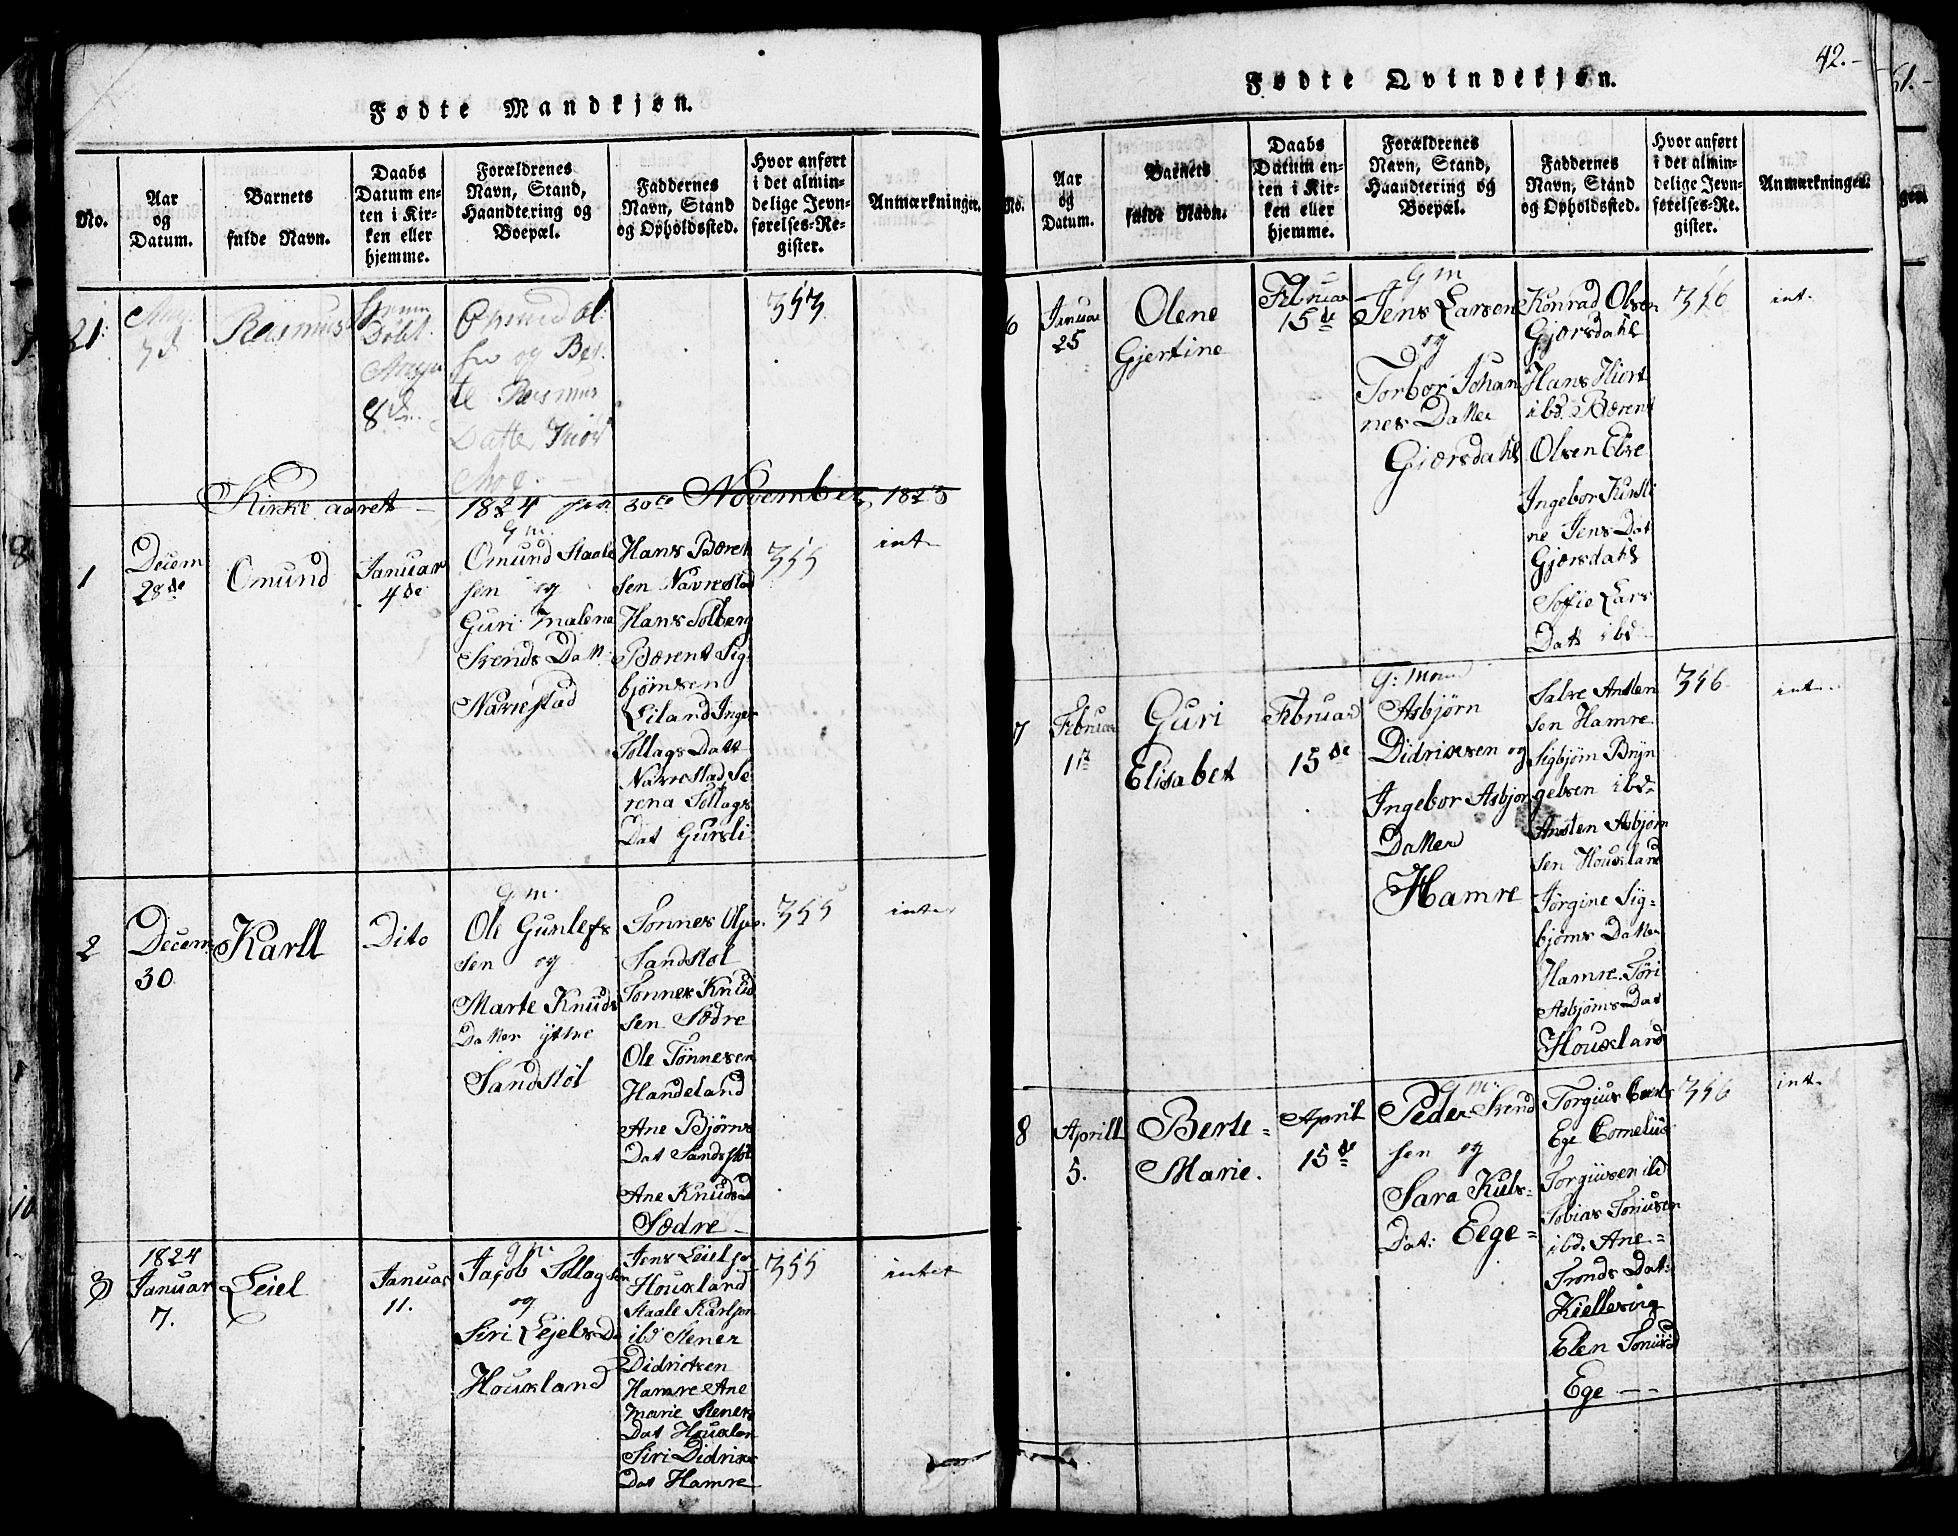 Fødte Mandkjøn.
No.
Aar
og
Datum.
Barnets
fulde Navn.
Daabs
Datum en-
ten i Kir-
ken eller
hjemme.
Forældrenes
Navn, Stand,
Haandtering og
Boepæl.
Faddernes
Navn, Stand
og Opholdssted.
Hvor anført
i det almin-
delige Jevn-
førelses-Re-
gister.
Anmærkninger.
21
Rasmus
Døbt
og Ber
te Rasmus
Datter
353
Kirke aaret – 1824 fra 30te November 1823
1
Decem
28de
Omund
Januar
4de
G m.
Omund Staale
sen og
Guri Malene
Svends Datt
Navrestad
Hans Bærent
sen Navrestad
Hans Solberg
Bærent Sig-
bjørnsen
Eiland Inger
Tollags Datt
Navrestad Se-
rena Tollags
Dat Gursli
355
int
2
Decem
30
Karll
Dito
G m.
Ole Gunlefs
sen og
Marte Knuds
Datter ÿttre
Sandstøl
Tønnes
Sandstøl
Tønnes Knud
sen Sædre
Ole Tønnesen
Handeland
Ane Bjørns
Dat Sandstøl
Ane Knuds D
Sædre –
355
intet
3
1824
Januar
7.
Leiel
Januar
11.
g m.
Jacob Tollagsen
og
Siri Lejels D
Houxland
Jens Leielsen
Houxland
Staale Karlsen
ibd Stener
Didriksen
Hamre Ane
Marie Steners
Dat Houxlan
Siri Didriks
Dat Hamre
355
intet
42.-
Fødte Qvindekjøn.
No.
Aar
og
Datum.
Barnets
fulde Navn.
Daabs
Datum en-
ten i Kir-
ken eller
hjemme.
Forældrenes
Navn, Stand,
Haandtering og
Boepæl.
Faddernes
Navn, Stand
og Opholdssted.
Hvor anført
i det almin-
delige Jevn-
førelses-Re-
gister.
Anmærkninger.
6
Januar
25
Olene
Gjertine
Februar
15de
G m
Jens Larsen
og
Torbor Johan
nes Datter
Gjørsdahl
Konrad Olsen
Gjørsdahl
Hans Hiort
ibd. Bærent
Olsen Elve
Ingebor Kirsti
ne Jens Dat
Gjørsdahl
Sofie Lars
Datt ibd
356
int.
7
Februar
1
Guri
Elisabet
Februar
15de
G: m
Asbjørn
Didrixsen og
Ingebor Asbjør
Datter
Hamre
Salve Ansten
sen Hamre
Sigbjørn Bryn
gelsen ibd
Ansten Asbjørn
sen Houxland
Jørgine Sig-
bjørns Datter
Hamre Tøri
Asbjørns Dat
Houxland
356
int.
8
Aprill
5.
Berte
Marie.
April
15de
G m.
Peder Svend
sen og
Sara
Dat: Eege
Torgius
Ege Cornelius
Torgiusen ibd
Tobias Toniusen
ibd. Ane
Tronds Dat:
Kiellesvig
Elen
Ege
356
int.